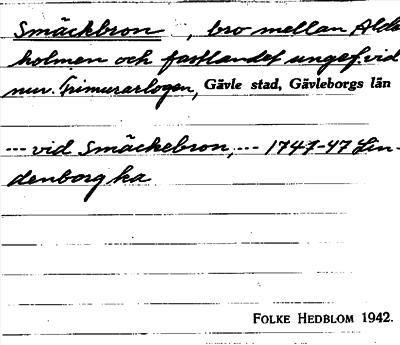 Smäckbron, bro mellan Alde
holmen och fastlandet ungef. vid
nuv. Frimurarlogen, Gävle stad, Gävleborgs län
--- vid Smäckebron, --- 1747-47 Lin-
denborg ka
FOLKE HEDBLOM 1942.